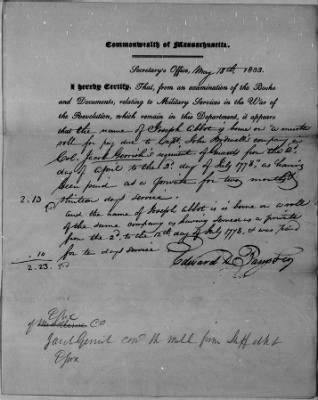 Commonwealth of Massachusetts.
Secretary's Office, May 18th, 1833.
I hereby Certify, That, from an examination of the Books
and Documents, relating to Military Services in the War of
the Revolution, which remain in this Department, it appears
that the name of Joseph Abbot is borne on a muster
roll for pay due to Capt. John company in
Col. Jacob Gerrish's regiment of Guards from the 2d
day of April to the 3d day of July 1778, as having
been paid as a private for two months
2.13 thirteen days service
and the name of Joseph Abbot is borne on a roll
of the same company as having served as a private
from the 2d to the 12th day of July 1778, & was paid
.10 for ten days service
2.23
Edward D. Bangs Sec
Essex
of Co
Jacob Gerrish com the Mill from Suffolk &
Essex